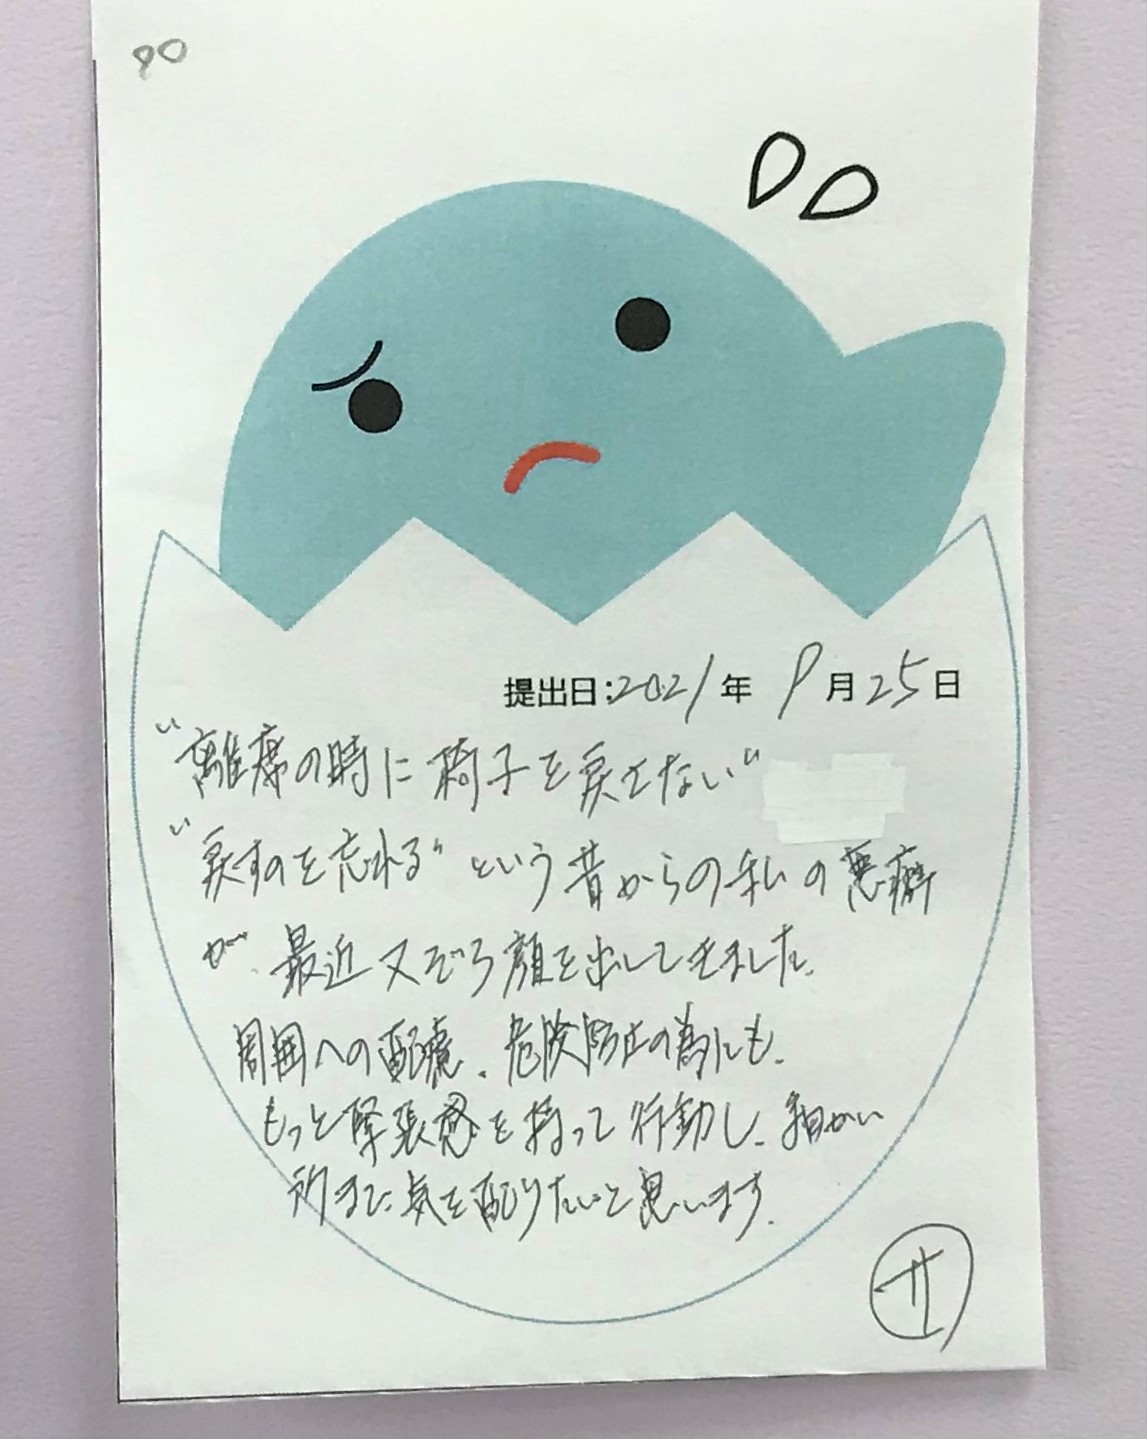 90
提出日:2021年 9月25日
"離席の時に椅子を戻さない"
"戻すのを忘れる"という昔からの私の悪癖
が、最近又ぞろ顔を出してきました。
周囲への配慮、危険防止の為にも、
もっと緊張感を持って行動し、細かい
所まで気を配りたいと思います。